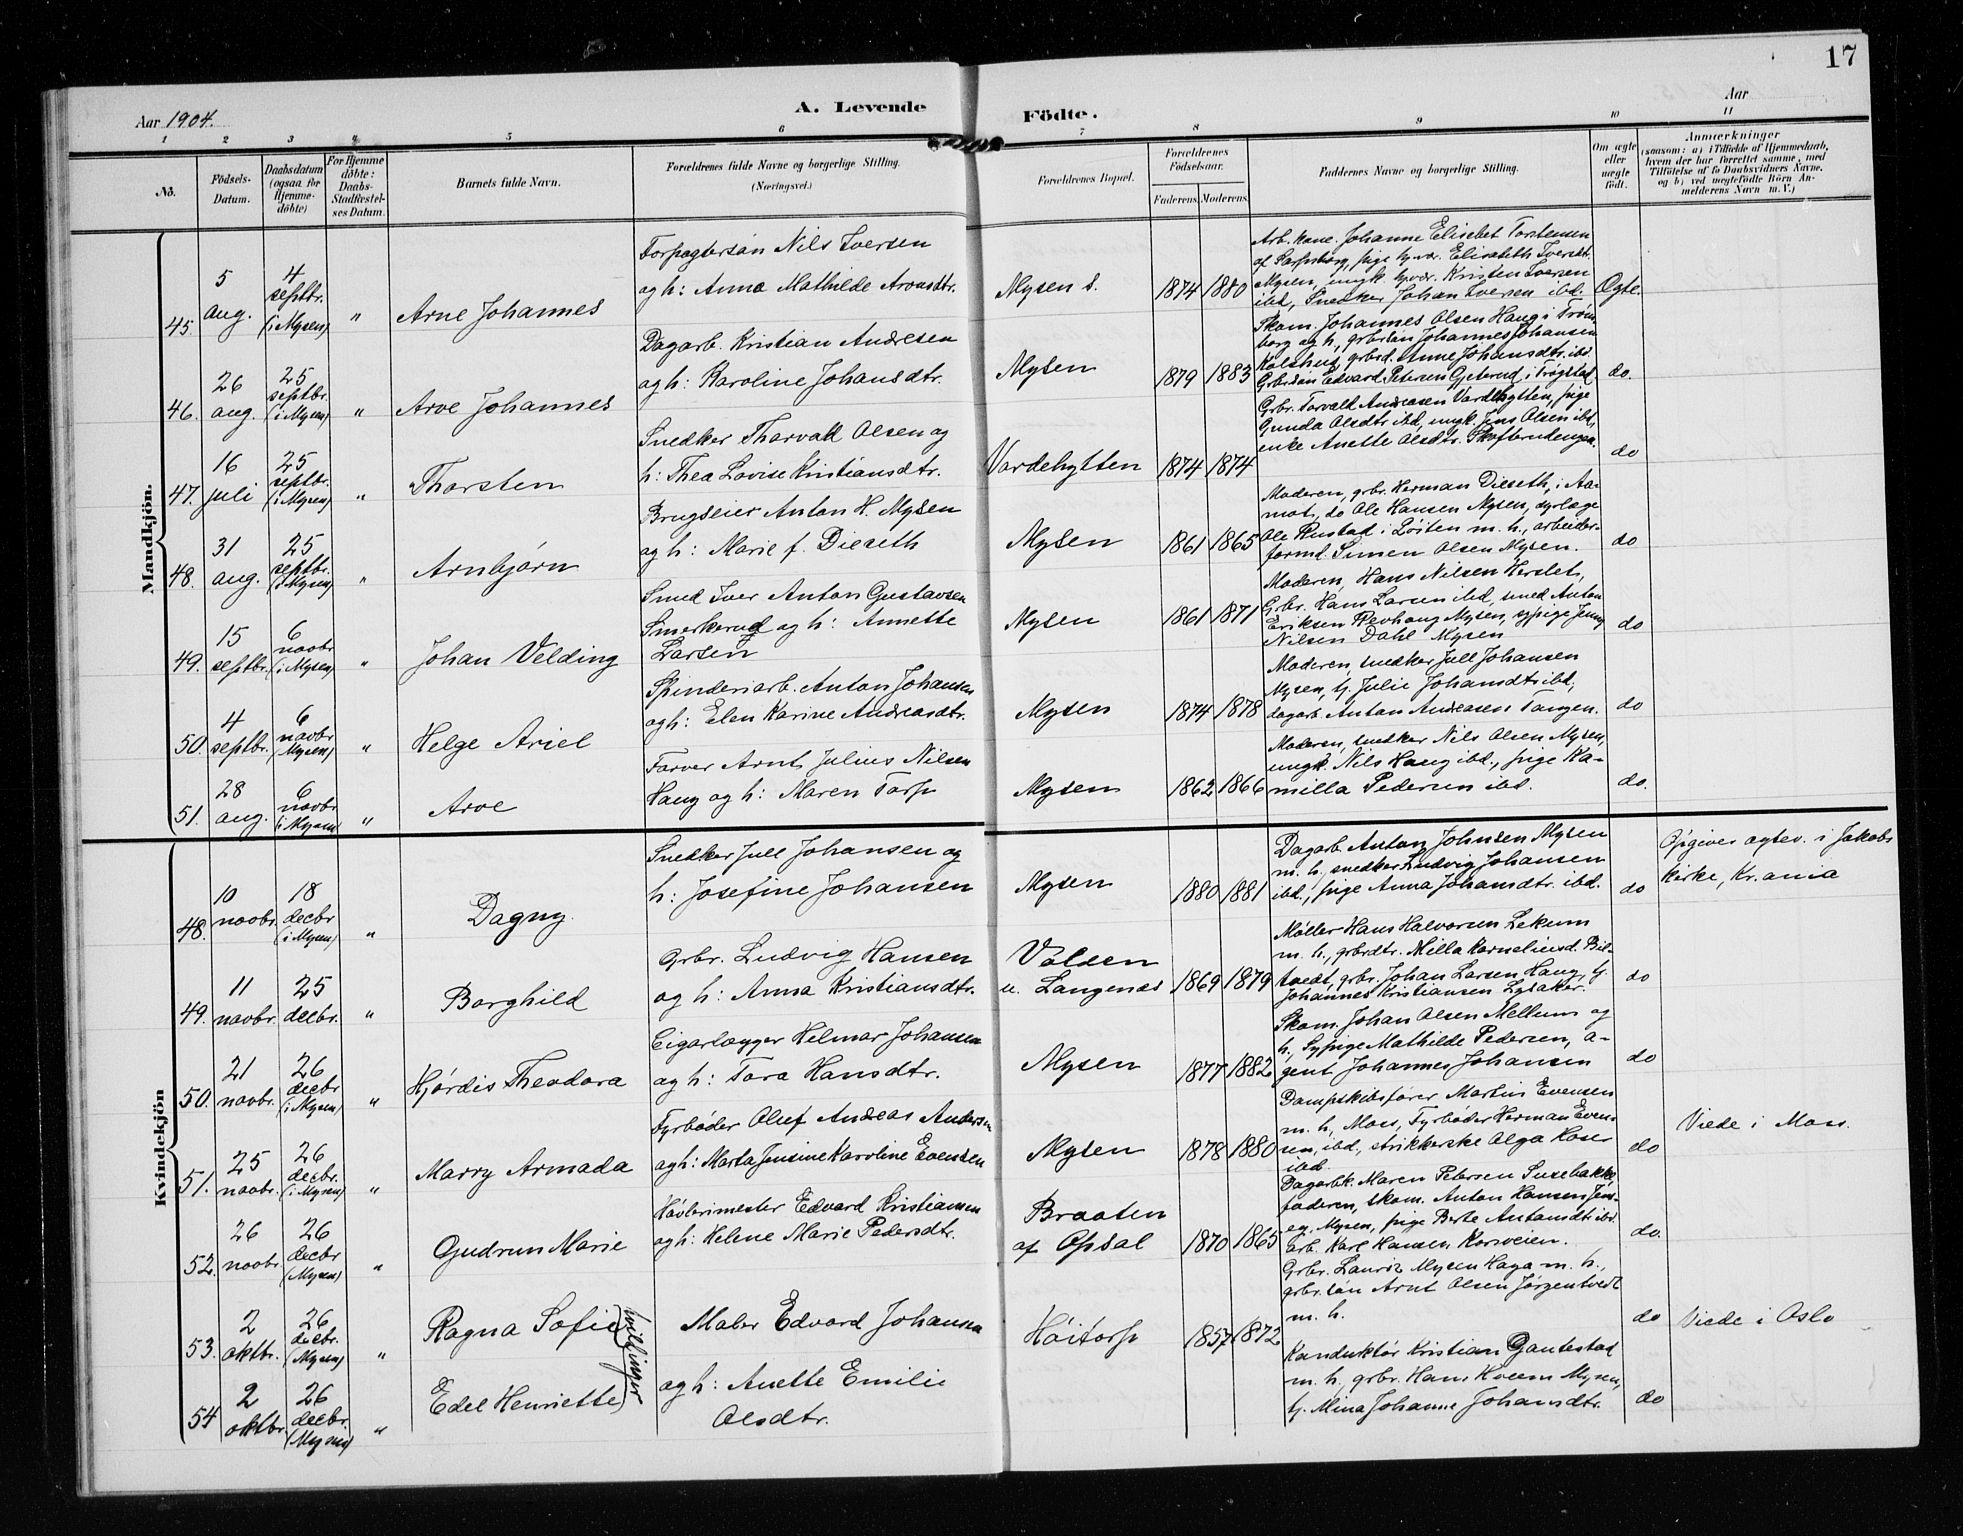 17
Aar 1904.
A. Levende
Födte.
Aar
1 2 3 4 5 6 7 8 9 10 11
No.
Födsels-Datum.
Daabsdatum (ogsaa for Hjemme-döbte)
For Hjemme döbte: Daabs-Stadfestel-ses Datum.
Barnets fulde Navn.
Forældrenes fulde Navne og borgerlige Stilling.
(Næringsvei.)
Forældrenes Bopæl.
Forældrenes Födselsaar.
Faderens. Moderens.
Faddernes Navne og borgerlige Stilling.
Om ægte eller uægte födt.
Anmærkninger
(saasom: a) i Tilfælde af Hjemmedaab,
hvem der har forrettet samme, med
Tilföielse af to Daabsvidners Navne,
og b) ved uægtefödte Börn An-
melderens Navn m. V.)
Mandkjön.
45. 5 aug. 4 septbr. (i Mysen) " Arne Johannes
Forpagtersøn Nils Iversen
og h: Anna Mathilde Arvesdtr.
Mysen s. 1874 1880
Arb. kone. Johanne Elisebet Torstensen
af Sarpsborg, pige hjvær. Elisabeth Iversdtr.
Mysen, ungk. hjvær. Kristen Iversen
ibd, Snedker Johan Iversen ibd.
Ogte.
46. 26 aug. 25 septbr. (i Mysen) " Arve Johannes
Dagarb. Kristian Andresen
og h: Karoline Johansdtr.
Mysen 1879 1883
Skom. Johannes Olsen Haug i Trøm-
borg og h, grbrsøn Johannes Johansen
Kolshus, grbrd. Anne Johansdtr. ibd.
Grbrsøn Edvard Petersen Gjeterud i Trøgstad
do.
47. 16 juli 25 septbr. (i Mysen) " Thorsten
Snedker Thorvald Olsen og
h: Thea Lovise Kristiansdtr.
Vardehytten 1874 1874
Grbr. Torvald Andreasen Vardehytten, pige
Gunda Olsdtr ibd, ungk. Jens Olsen ibd,
enke Anette Olsdtr. Skofterudengen.
do
48. 31 aug. 25 septbr. (i Mysen) " Arnbjørn
Brugseier Anton H. Mysen
og h: Marie f. Dieseth
Mysen 1861 1865
Moderen, grbr. Herman Dieseth, i Aa-
mot, do Ole Hansen Mysen, dyrlæge
Ole Rustad i Løiten m. h., arbeider-
formd. Simen Olsen Mysen.
do
49. 15 septbr. 6 novbr (i Mysen) " Johan Velding
Smed Iver Anton Gustavsen
Smerkerud og h: Annette
Larsen
Mysen 1861 1871
Moderen, Hans Nilsen Herslet,
Grbr. Hans Larsen ibd, smed Anton
Eriksen Revhaug Mysen, sypige Jenny
Nilsen Dahl Mysen
do
50. 4 septbr. 6 novbr (Mysen) " Helge Ariel
Spinderiarb. Anton Johansen
og h: Elen Karine Andreasdtr.
Mysen 1874 1878
Moderen, snedker Jull Johansen
Mysen, tj. Julie Johansdtr ibd,
dagarb. Anton Andreasen Tangen.
do
51. 28 aug. 6 novbr (i Mysen) " Arve
Farver Arnt Julius Nilsen
Haug og h: Maren Torp
Mysen 1862 1866
Moderen, snedker Nils Olsen Mysen,
ungk. Nils Haug ibd., pige Ka-
milla Pedersen ibd.
do.
Kvindekjön
48. 10 novbr. 18 decbr (i Mysen) " Dagny.
Snedker Jull Johansen og
h: Josefine Johansen
Mysen 1880 1881
Dagarb. Anton Johnsen Mysen
m. h., snedker Ludvig Johansen
ibd., pige Anna Johansdtr. ibd.
do
Opgives ægtev. i Jakobs
kirke, Kr.ania
49. 11 novbr. 25 decbr. " Borghild
Grbr. Ludvig Hansen
og h: Anna Kristiansdtr.
Volden
u. Langenæs 1869 1879
Møller Hans Halvorsen Lekum
m. h., grbrdtr. Milla Korneliusd. Bil-
tvedt, grbr. Johan Larsen Haug, tj.
Johannes Kristiansen Lysaker.
do
50. 21 novbr. 26 decbr (i Mysen) " Hjørdis Theodora
Cigarlægger Helmar Johansen
og h: Tora Hansdtr.
Mysen 1877 1882
Skom. Johan Olsen Mellum og
h., Sypige Mathilde Pedersen, a-
gent Johannes Johansen
do
51. 25 novbr. 26 decbr. (i Mysen) " Marry Armada
Fyrbøder Oluf Andreas Andersen
og h: Marta Jensine Karoline Evensen
Mysen 1878 1880
Dampskibsfører Martius Evensen
m. h, Moss, Fyrbøder Herman Even-
sen, ibd., strikkerske Olga Hoser
ibd.
do
Viede i Moss.
52. 26 novbr. 26 decbr (Mysen) " Gudrun Marie
Høvlerimester Edvard Kristiansen
og h: Helene Marie Pedersdtr.
Braaten
af Opsal 1870 1865
Dagarbk. Maren Petersen Susebakke,
faderen, skom. Anton Hansen Jens-
eg, Mysen, pige Berte Antonsdtr ibd.
Erb. Karl Hansen Korsveien.
do.
53. 2 oktbr. 26 decbr. (Mysen) " Ragna Sofie
tvillinger
Maler Edvard Johansen
Høitorp 1857 1872
Grbr. Lauriz Mysen Haga m. h.,
grbr.søn Arnt Olsen Jørgentvedt
m. h.
do
Viede i Oslo
54 2 oktbr. 26 decbr. (Mysen) " Edel Henriette
og h: Anette Emilie
Olsdtr.
Konduktør Kristian Gautestad
m. h, grbr. Hans Kveem Mysen,
tj. Mina Johanne Johansdtr.
do